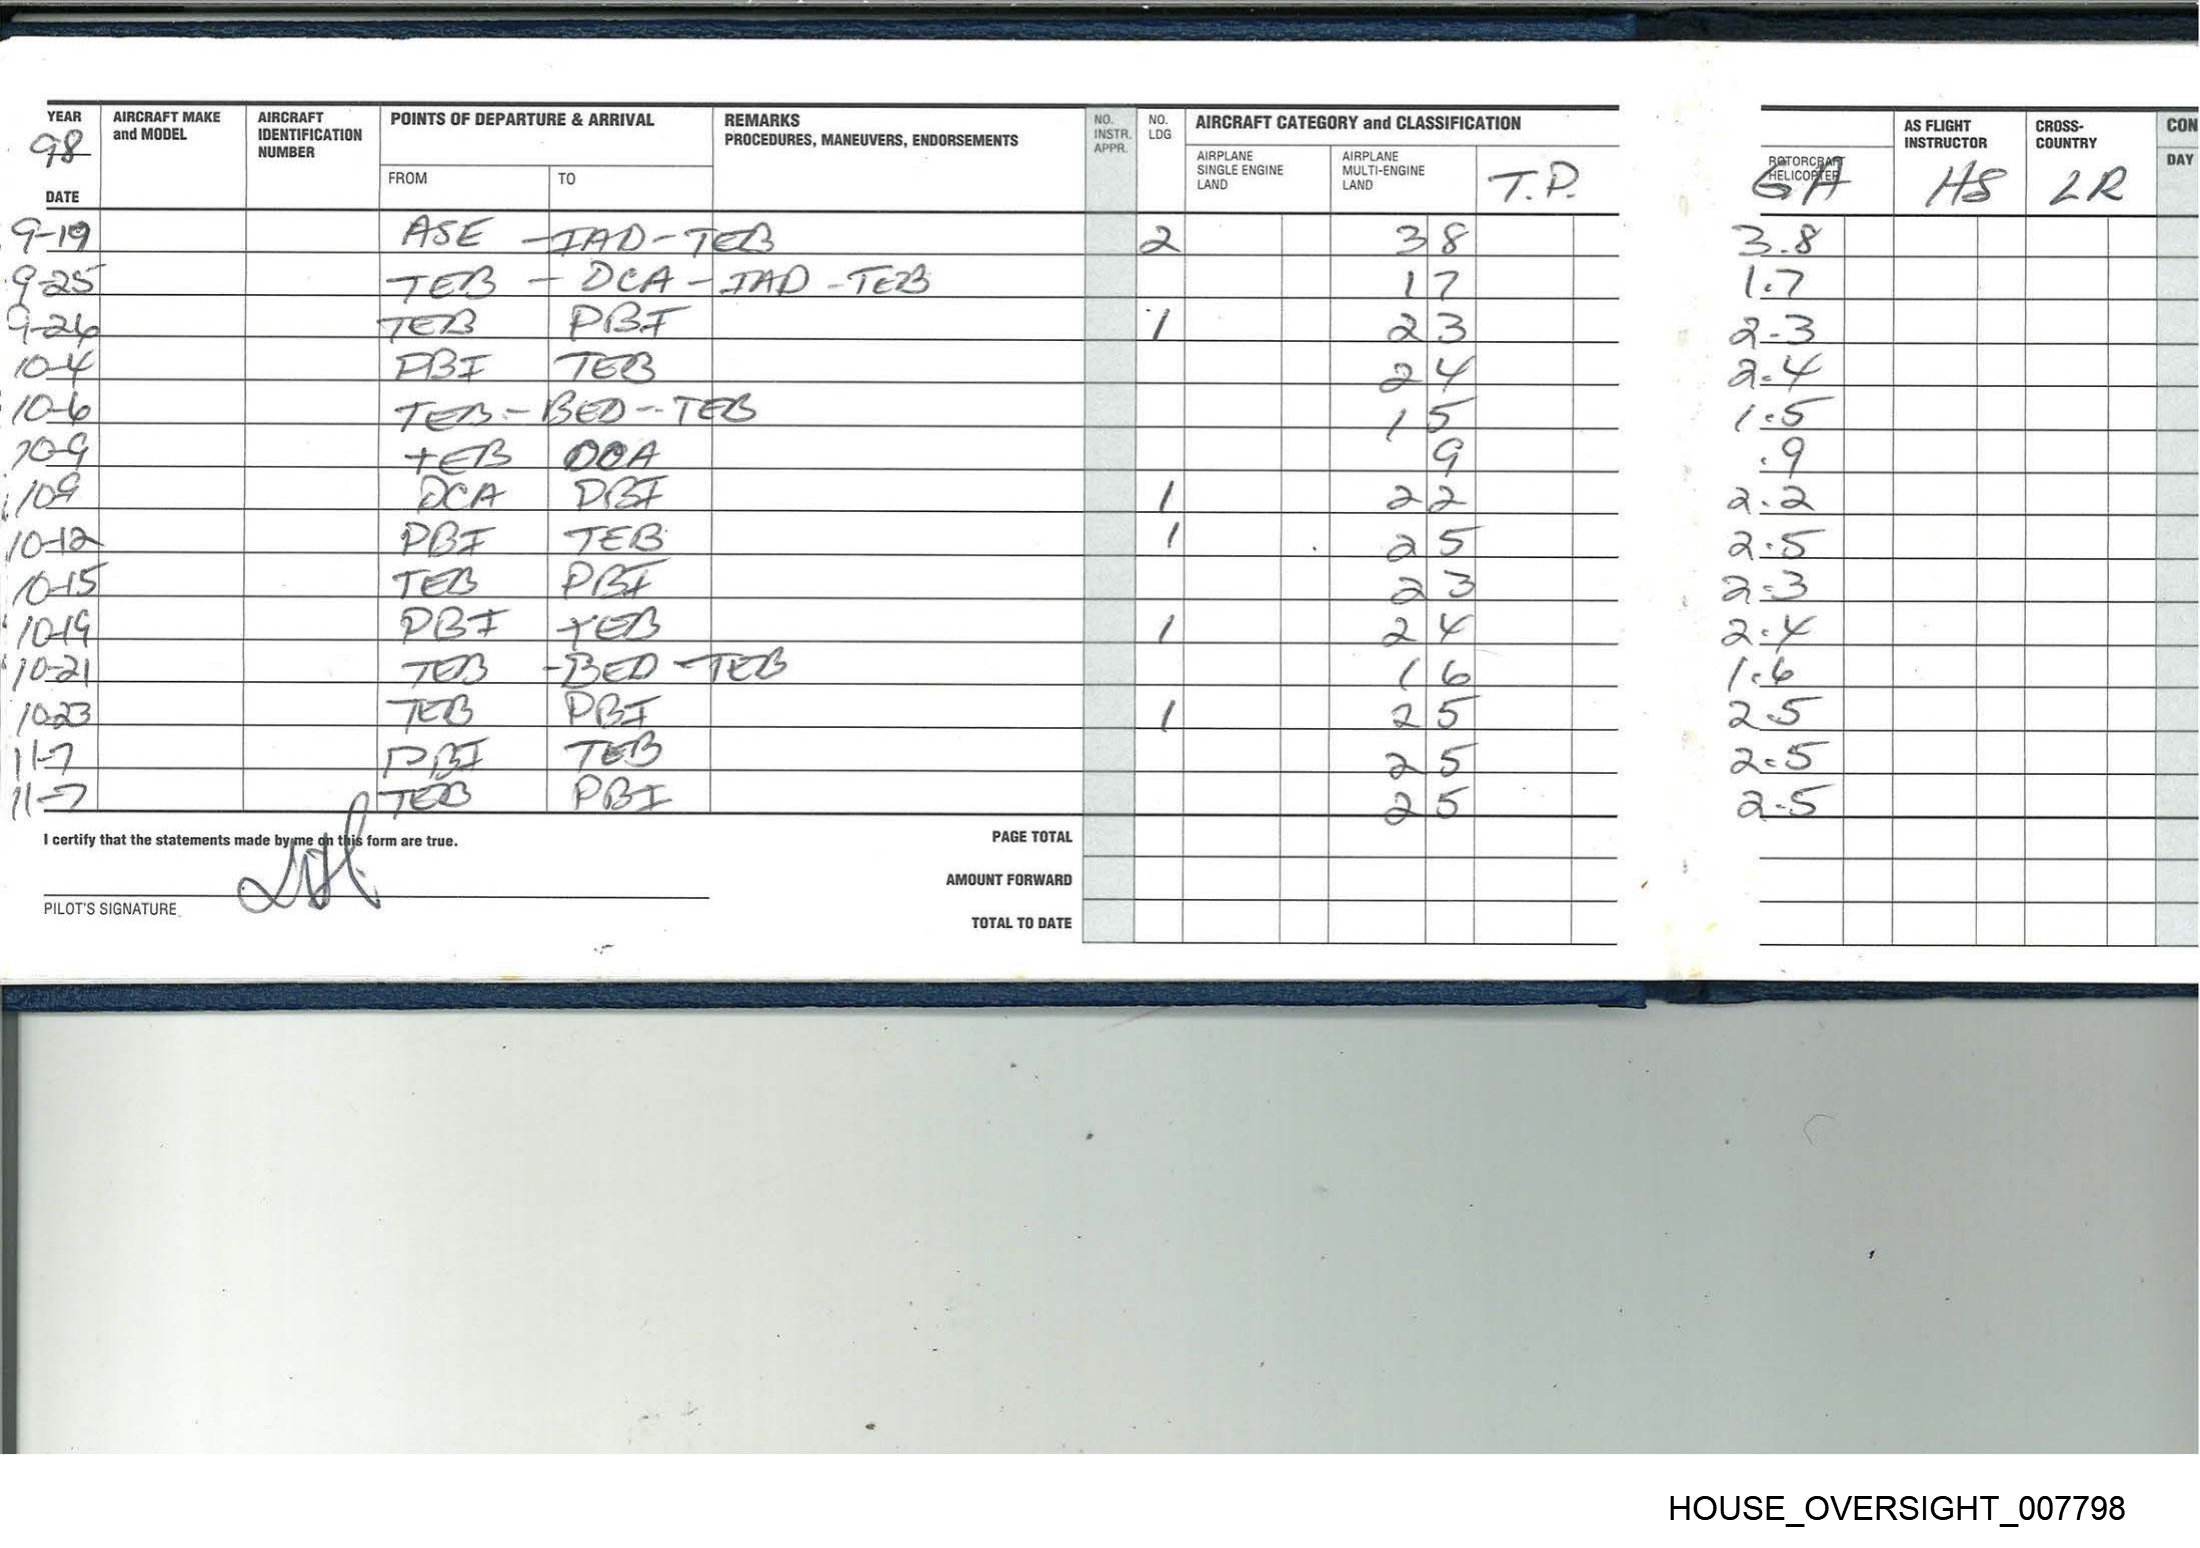 YEAR AIRCRAFT MAKE and MODEL AIRCRAFT IDENTIFICATION NUMBER POINTS OF DEPARTURE & ARRIVAL REMARKS PROCEDURES, MANEUVERS, ENDORSEMENTS NO. INSTR. APPR. NO. LDG AIRCRAFT CATEGORY and CLASSIFICATION AS FLIGHT INSTRUCTOR CROSS-COUNTRY CON
98 DATE FROM TO AIRPLANE SINGLE ENGINE LAND AIRPLANE MULTI-ENGINE LAND T.P. ROTORCRAFT HELICOPTER GA HS LR DAY
9-19 ASE - IAD - TEB 2 3 8 3.8
9-25 TEB - DCA - IAD - TEB 1 7 1.7
9-26 TEB PBI 1 2 3 2.3
10-4 PBI TEB 2 4 2.4
10-6 TEB - BED - TEB 1 5 1.5
10-9 TEB DCA 9 .9
10-9 DCA PBI 1 2 2 2.2
10-12 PBI TEB 1 2 5 2.5
10-15 TEB PBI 2 3 2.3
10-19 PBI TEB 1 2 4 2.4
10-21 TEB - BED - TEB 1 6 1.6
10-23 TEB PBI 1 2 5 2.5
11-7 PBI TEB 2 5 2.5
11-7 TEB PBI 2 5 2.5
I certify that the statements made by me on this form are true. PAGE TOTAL
AMOUNT FORWARD
PILOT'S SIGNATURE TOTAL TO DATE
HOUSE_OVERSIGHT_007798